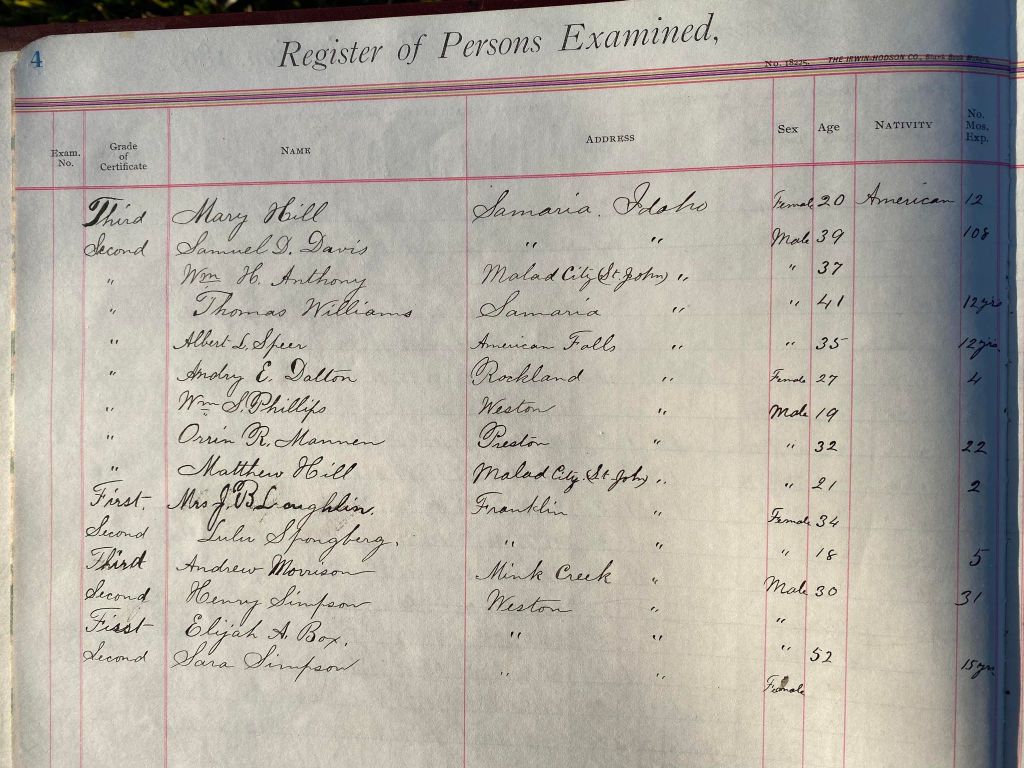 4
Register of Persons Examined,
No. 18225. THE IRWIN-HODSON CO., Blank Book Makers,
Exam. No. Grade of Certificate Name Address Sex Age Nativity No. Mos. Exp.
Third Mary Hill Samaria. Idaho Female 20 American 12
Second Samuel D. Davis " " Male 39 108
" Wm H. Anthony Malad City (St John) " " 37
" Thomas Williams Samaria " " 41 12 yrs
" Albert L. Speer American Falls " " 35 12 yrs
" Andry E. Dalton Rockland " Female 27 4
" Wm S. Phillips Weston " Male 19
" Orrin R. Mannen Preston " " 32 22
" Matthew Hill Malad City. St John) " " 21 2
First. Mrs J. B Loughlin. Franklin " Female 34
Second Lulu Spongberg. " " " 18 5
Third Andrew Morrison Mink Creek " Male 30 31
Second Henry Simpson Weston " "
First Elijah A. Box. " " " 52 15 yrs
Second Sara Simpson " " Female